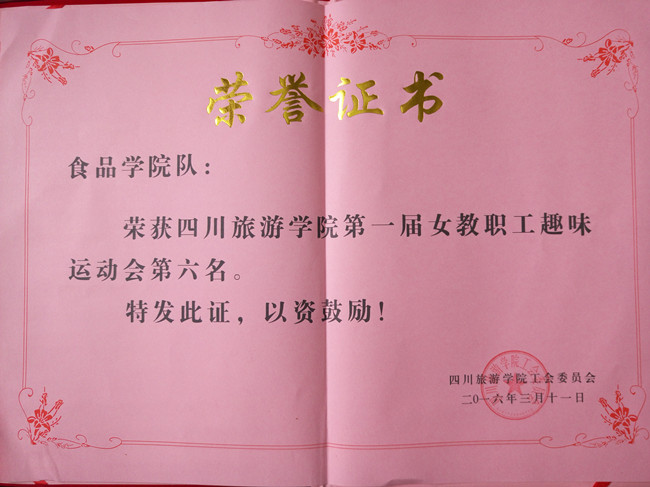 荣誉证书
食品学院队：
荣获四川旅游学院第一届女教职工趣味
运动会第六名。
特发此证，以资鼓励！
四川旅游学院工会委员会
二〇一六年三月十一日